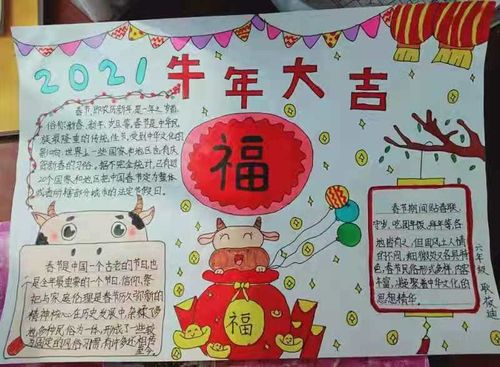 2021牛年大吉
春节,即农历新年,是一年之岁首,
俗称新春、新年、岁旦等,春节是中华民
族最隆重的传统佳节,受到中华文化的
影响,世界上一些国家和地区也有庆
贺新春的习俗。据不完全统计,已有近
20个国家和地区把中国春节定为整体
或者所辖部分城市的法定节假日。
福
春节是中国一个古老的节日,也
是全年最重要的一个节日,
在历史发展中,杂糅了多
地多种民俗为一体,形成了一些较
为固定的风俗习惯,有许多还相传
至今。
福
春节期间贴春联、
守岁、吃团年饭、拜年等,各
地皆有之,但因风土人情
的不同,细微处又各具特
色,春节民俗形式多样、内容
丰富,凝聚着中华文化的
思想精华。
六年级